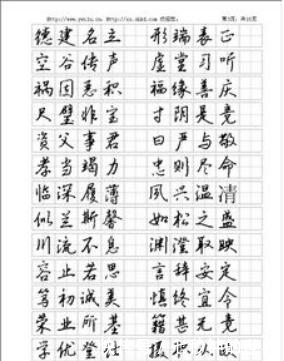 德建名立 形端表正
空谷传声 虚堂习听
祸因恶积 福缘善庆
尺璧非宝 寸阴是竞
资父事君 曰严与敬
孝当竭力 忠则尽命
临深履薄 夙兴温凊
似兰斯馨 如松之盛
川流不息 渊澄取映
容止若思 言辞安定
笃初诚美 慎终宜令
荣业所基 籍甚无竟
学优登仕 摄职从政